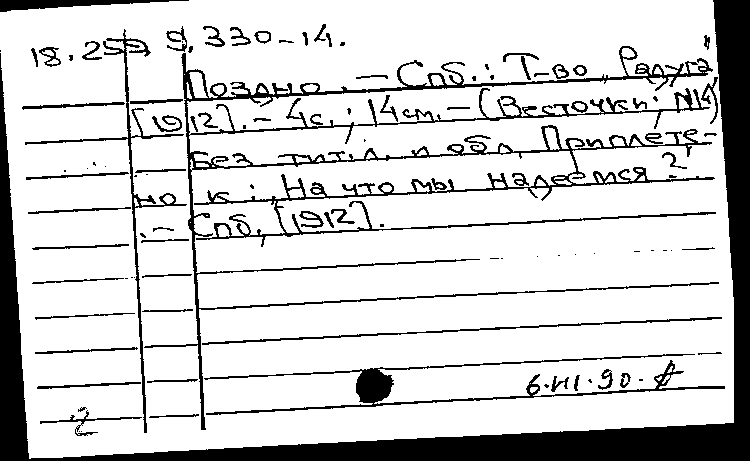 18.259.9.330-14.
Поздно. - Спб.: Т-во „Радуга",
[1912]. - 4с.; 14см. - (Весточки; №14)
Без тит. л. и обл. Приплете-
но к: „На что мы надеемся?"
. - Спб, [1912].
6.III.90.
2